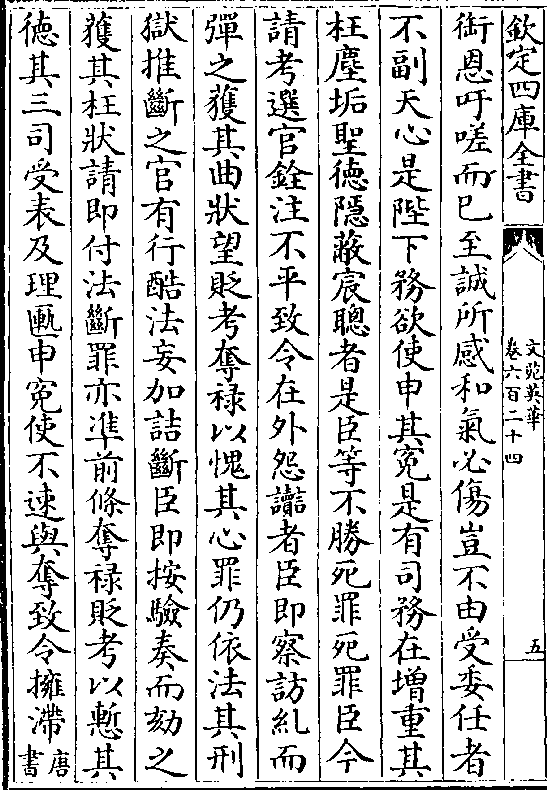 欽定四庫全書
文苑英華
卷六百二十四
五
銜恩吁嗟而已至誠所感和氣必傷豈不由受委任者
不副天心是陛下務欲使申其冤是有司務在增重其
枉塵垢聖徳隱蔽宸聰者是臣等不勝死罪死罪臣今
請考選官銓注不平致令在外怨讟者臣即察訪糺而
彈之䕶其曲狀望貶考奪禄以愧其心罪仍依法其刑
獄推斷之官有行酷法妄加詰斷臣即按驗奏而劾之
䕶其枉狀請即付法斷罪亦準前條奪禄貶考以慙其
徳其三司受表及理匭申冤使不速與奪致令擁滯唐書